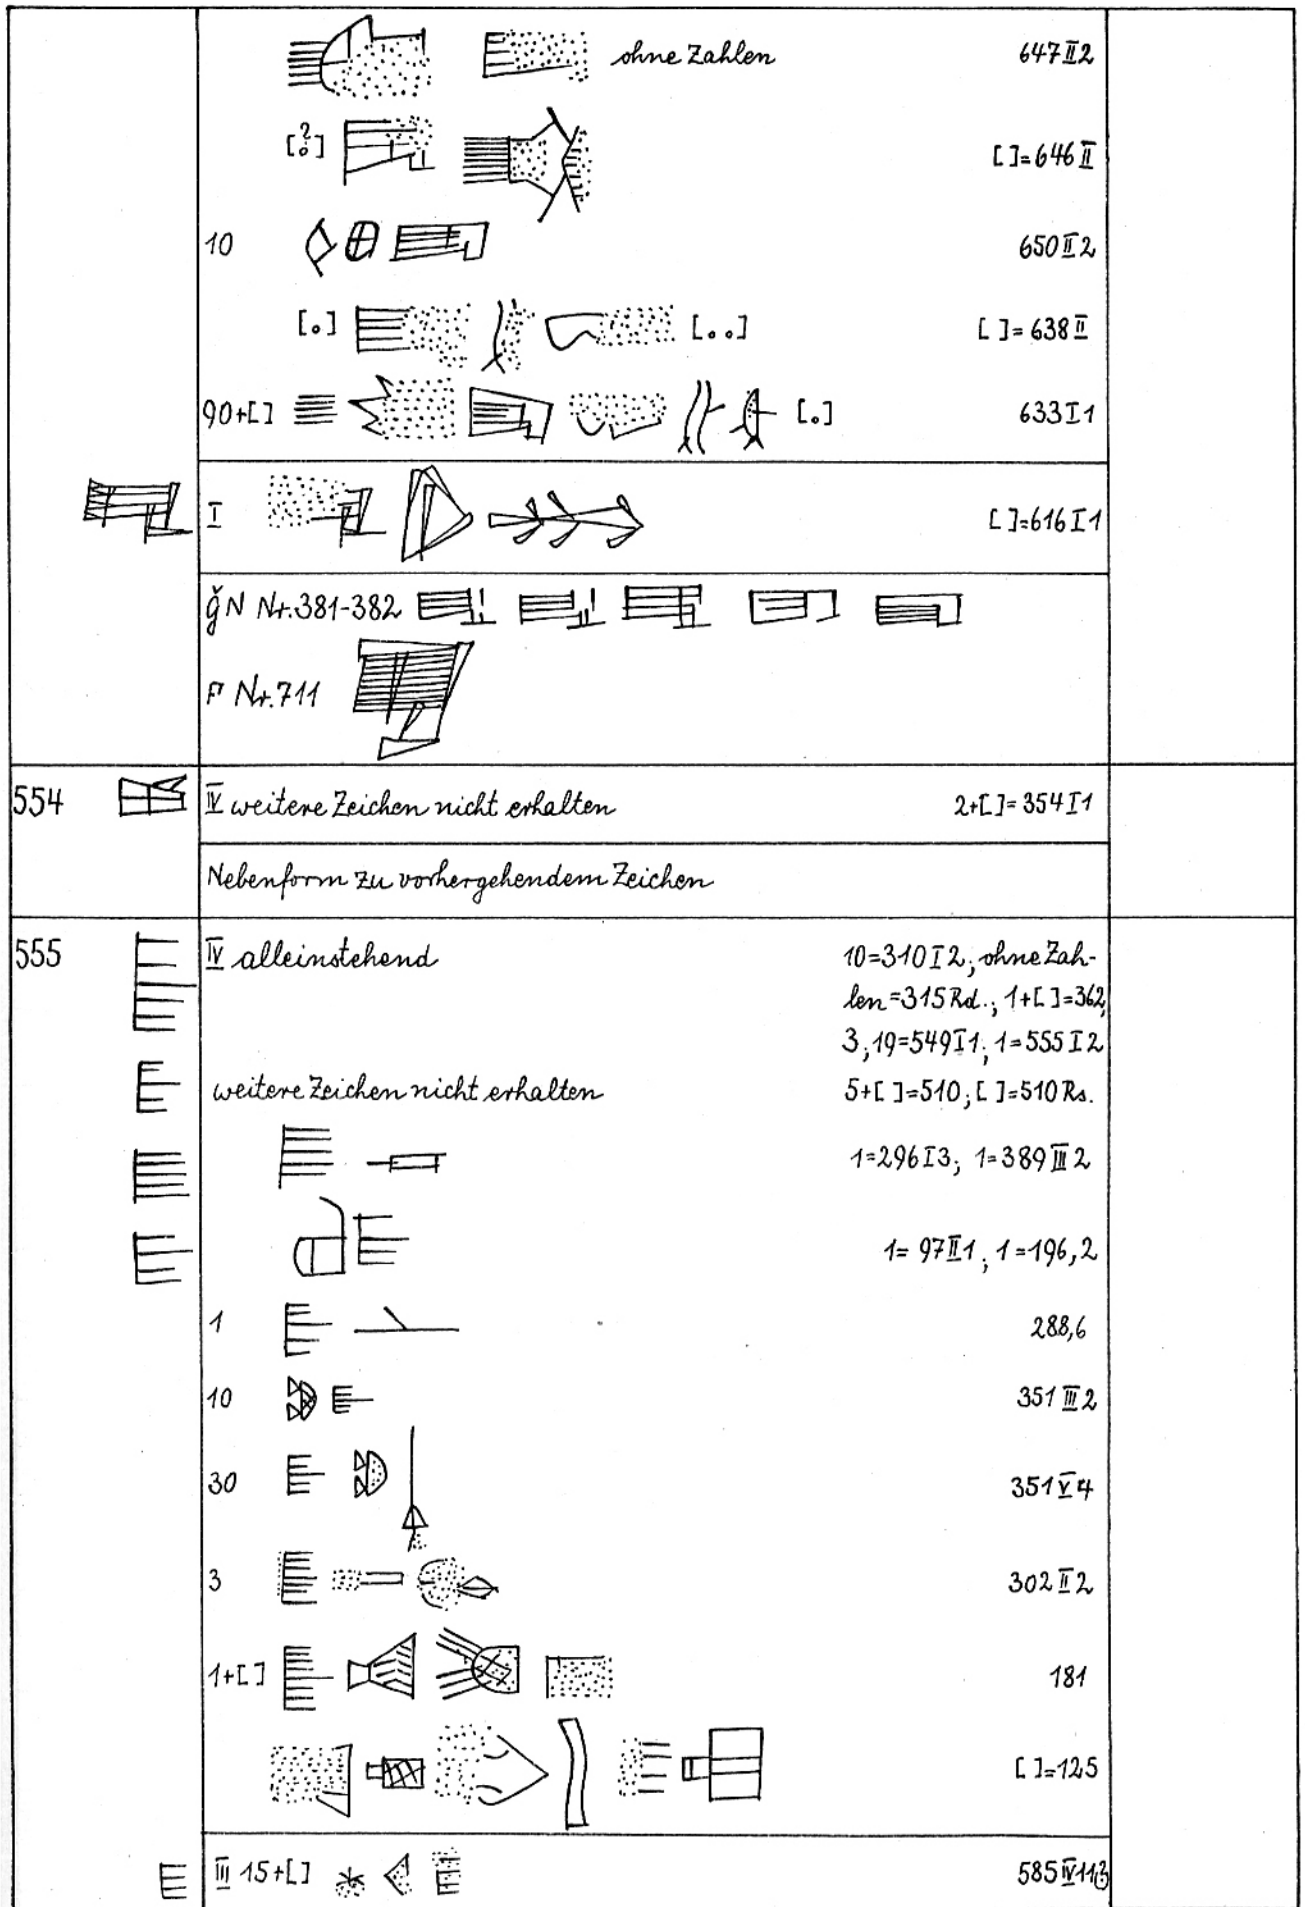 ohne Zahlen 647 II 2
[?] [ ]=646 II
10 650 II 2
[.] [..] [ ]=638 II
90+[ ] [.] 633 I 1
I [ ]=616 I 1
ǧN Nr.381-382
F Nr.711
554 IV weitere Zeichen nicht erhalten 2+[ ]=354 I 1
Nebenform zu vorhergehendem Zeichen
555 IV alleinstehend 10=310 I 2; ohne Zah-
len=315 Rd.; 1+[ ]=362,
3; 19=549 I 1; 1=555 I 2
weitere Zeichen nicht erhalten 5+[ ]=510; [ ]=510 Rs.
1=296 I 3; 1=389 III 2
1=97 II 1; 1=196,2
1 288,6
10 351 III 2
30 351 V 4
3 302 II 2
1+[ ] 181
[ ]=125
III 15+[ ] 585 IV